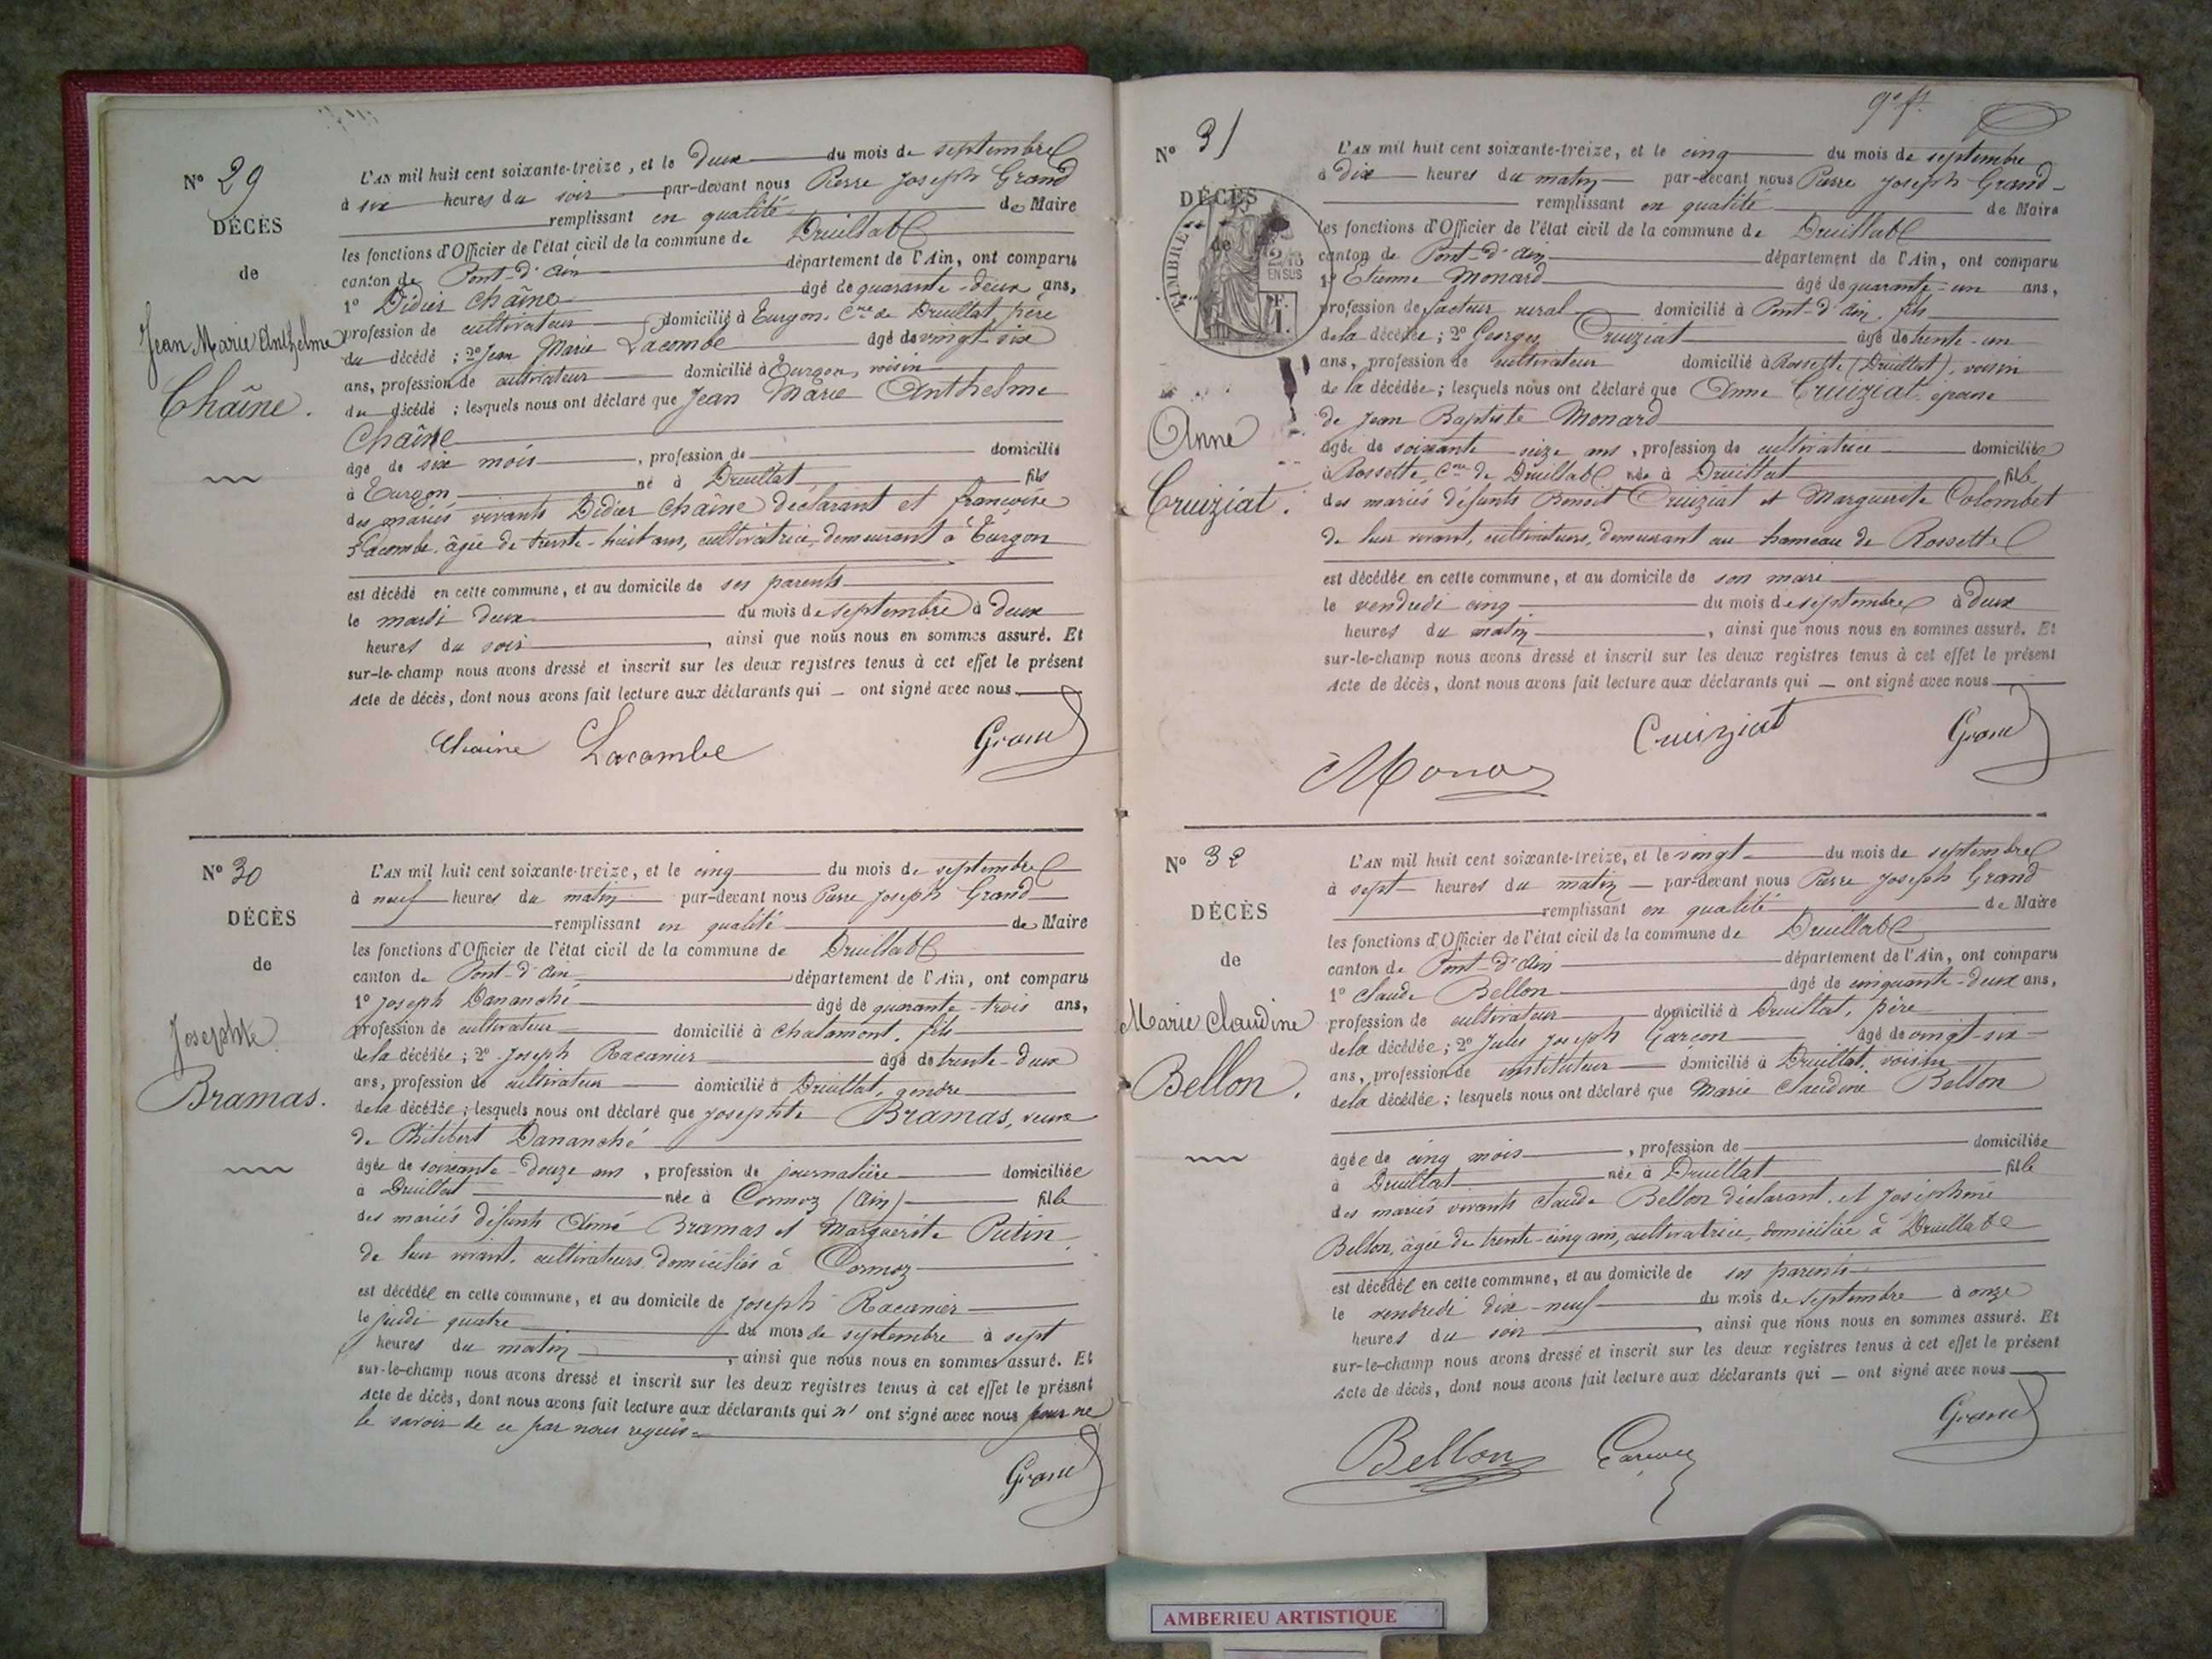 N° 29
DÉCÈS
de
Jean Marie Anthelme
Chaîne.
L'AN mil huit cent soixante-treize, et le deux du mois de septembre
à six heures du soir par-devant nous Pierre Joseph Grand
remplissant en qualité de Maire
les fonctions d'Officier de l'état civil de la commune de Druillat
canton de Pont-d'Ain département de l'Ain, ont comparu
1° Didier Chaîne âgé de quarante-deux ans,
profession de cultivateur domicilié à Turgon, Cne de Druillat, père
du décédé ; 2° Jean Marie Lacombe âgé de vingt six
ans, profession de cultivateur domicilié à Turgon, voisin
du décédé ; lesquels nous ont déclaré que Jean Marie Anthelme
Chaîne
âgé de six mois, profession de domicilié
à Turgon né à Druillat fils
des mariés vivants Didier Chaîne déclarant et françoise
Lacombe, âgée de trente-huit ans, cultivatrice, demeurant à Turgon
est décédé en cette commune, et au domicile de ses parents
le mardi deux du mois de septembre à deux
heures du soir, ainsi que nous nous en sommes assuré. Et
sur-le-champ nous avons dressé et inscrit sur les deux registres tenus à cet effet le présent
Acte de décès, dont nous avons fait lecture aux déclarants qui — ont signé avec nous.
Chaine Lacombe Grand
N° 30
DÉCÈS
de
Josephte
Bramas.
L'AN mil huit cent soixante-treize, et le cinq du mois de septembre
à neuf heures du matin par-devant nous Pierre Joseph Grand
remplissant en qualité de Maire
les fonctions d'Officier de l'état civil de la commune de Druillat
canton de Pont-d'Ain département de l'Ain, ont comparu
1° Joseph Dananché âgé de quarante-trois ans,
profession de cultivateur domicilié à Chatamont, fils
de la décédée ; 2° Joseph Racanier âgé de trente-deux
ans, profession de cultivateur domicilié à Druillat, gendre
de la décédée ; lesquels nous ont déclaré que Josephte Bramas, veuve
de Philibert Dananché
âgée de soixante-douze ans, profession de journalière domiciliée
à Druillat née à Cormoz (Ain) fille
des mariés défunts Aimé Bramas et Marguerite Putin
de leur vivant, cultivateurs domiciliés à Cormoz
est décédée en cette commune, et au domicile de Joseph Racanier
le jeudi quatre du mois de septembre à sept
heures du matin, ainsi que nous nous en sommes assuré. Et
sur-le-champ nous avons dressé et inscrit sur les deux registres tenus à cet effet le présent
Acte de décès, dont nous avons fait lecture aux déclarants qui n'ont signé avec nous pour ne
le savoir de ce par nous requis.
Grand
9e f.
N° 31
DÉCÈS
de
TIMBRE
2/10
EN SUS
Anne
Cruiziat.
L'AN mil huit cent soixante-treize, et le cinq du mois de septembre
à dix heures du matin par-devant nous Pierre Joseph Grand
remplissant en qualité de Maire
les fonctions d'Officier de l'état civil de la commune de Druillat
canton de Pont-d'Ain département de l'Ain, ont comparu
1° Etienne Monard âgé de quarante-un ans,
profession de facteur rural domicilié à Pont-d'Ain, fils
de la décédée ; 2° Georges Cruiziat âgé de trente-un
ans, profession de cultivateur domicilié à Rossette (Druillat), voisin
de la décédée ; lesquels nous ont déclaré que Anne Cruiziat, épouse
de Jean Baptiste Monard
âgée de soixante-seize ans, profession de cultivatrice domiciliée
à Rossette, Cne de Druillat née à Druillat fille
des mariés défunts Benoit Cruiziat et Marguerite Colombet
de leur vivant, cultivateurs, demeurant au hameau de Rossette
est décédée en cette commune, et au domicile de son mari
le vendredi cinq du mois de septembre à deux
heures du matin, ainsi que nous nous en sommes assuré. Et
sur-le-champ nous avons dressé et inscrit sur les deux registres tenus à cet effet le présent
Acte de décès, dont nous avons fait lecture aux déclarants qui — ont signé avec nous
Cruiziat Grand
N° 32
DÉCÈS
de
Marie Claudine
Bellon.
L'AN mil huit cent soixante-treize, et le vingt du mois de septembre
à sept heures du matin par-devant nous Pierre Joseph Grand
remplissant en qualité de Maire
les fonctions d'Officier de l'état civil de la commune de Druillat
canton de Pont-d'Ain département de l'Ain, ont comparu
1° Claude Bellon âgé de cinquante-deux ans,
profession de cultivateur domicilié à Druillat, père
de la décédée ; 2° Jules Joseph Garçon âgé de vingt-six
ans, profession de instituteur domicilié à Druillat, voisin
de la décédée ; lesquels nous ont déclaré que Marie Claudine Bellon
âgée de cinq mois, profession de domiciliée
à Druillat née à Druillat fille
des mariés vivants Claude Bellon déclarant, et Joséphine
Bellon, âgée de trente-cinq ans, cultivatrice, domiciliée à Druillat
est décédée en cette commune, et au domicile de ses parents
le vendredi dix-neuf du mois de septembre à onze
heures du soir, ainsi que nous nous en sommes assuré. Et
sur-le-champ nous avons dressé et inscrit sur les deux registres tenus à cet effet le présent
Acte de décès, dont nous avons fait lecture aux déclarants qui — ont signé avec nous
Bellon Grand
AMBERIEU ARTISTIQUE